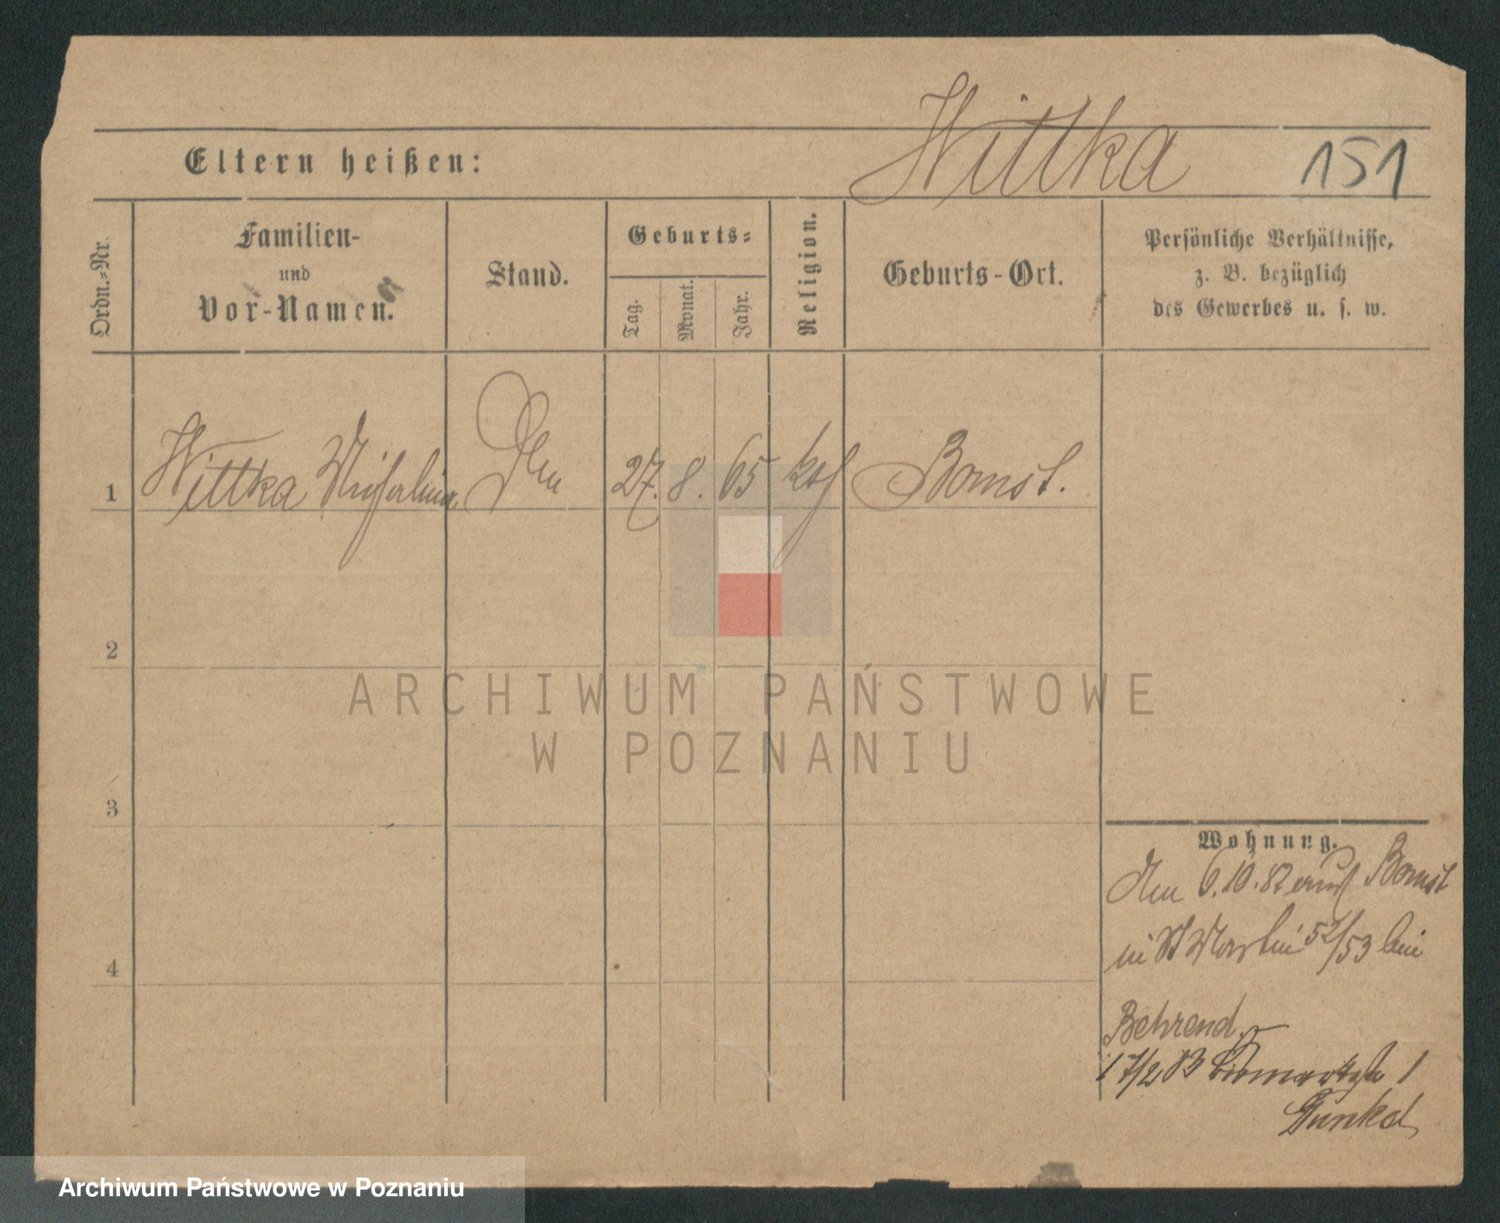 Wittka
Eltern heißen: 151
Ordn.-Nr.
Familien-
und
Vor-Namen.
Stand.
Geburts-
Tag.
Monat.
Jahr.
Religion.
Geburts-Ort.
Persönliche Verhältnisse,
z. B. bezüglich
des Gewerbes u. s. w.
1 Wittka 27. 8. 65 kth Bomst.
2
3
4
ARCHIWUM PAŃSTWOWE
W POZNANIU
Wohnung.
6.10.82 aus Bomst
in St Martin 52/53 bei
Behrend.
17/2 83 1
Archiwum Państwowe w Poznaniu